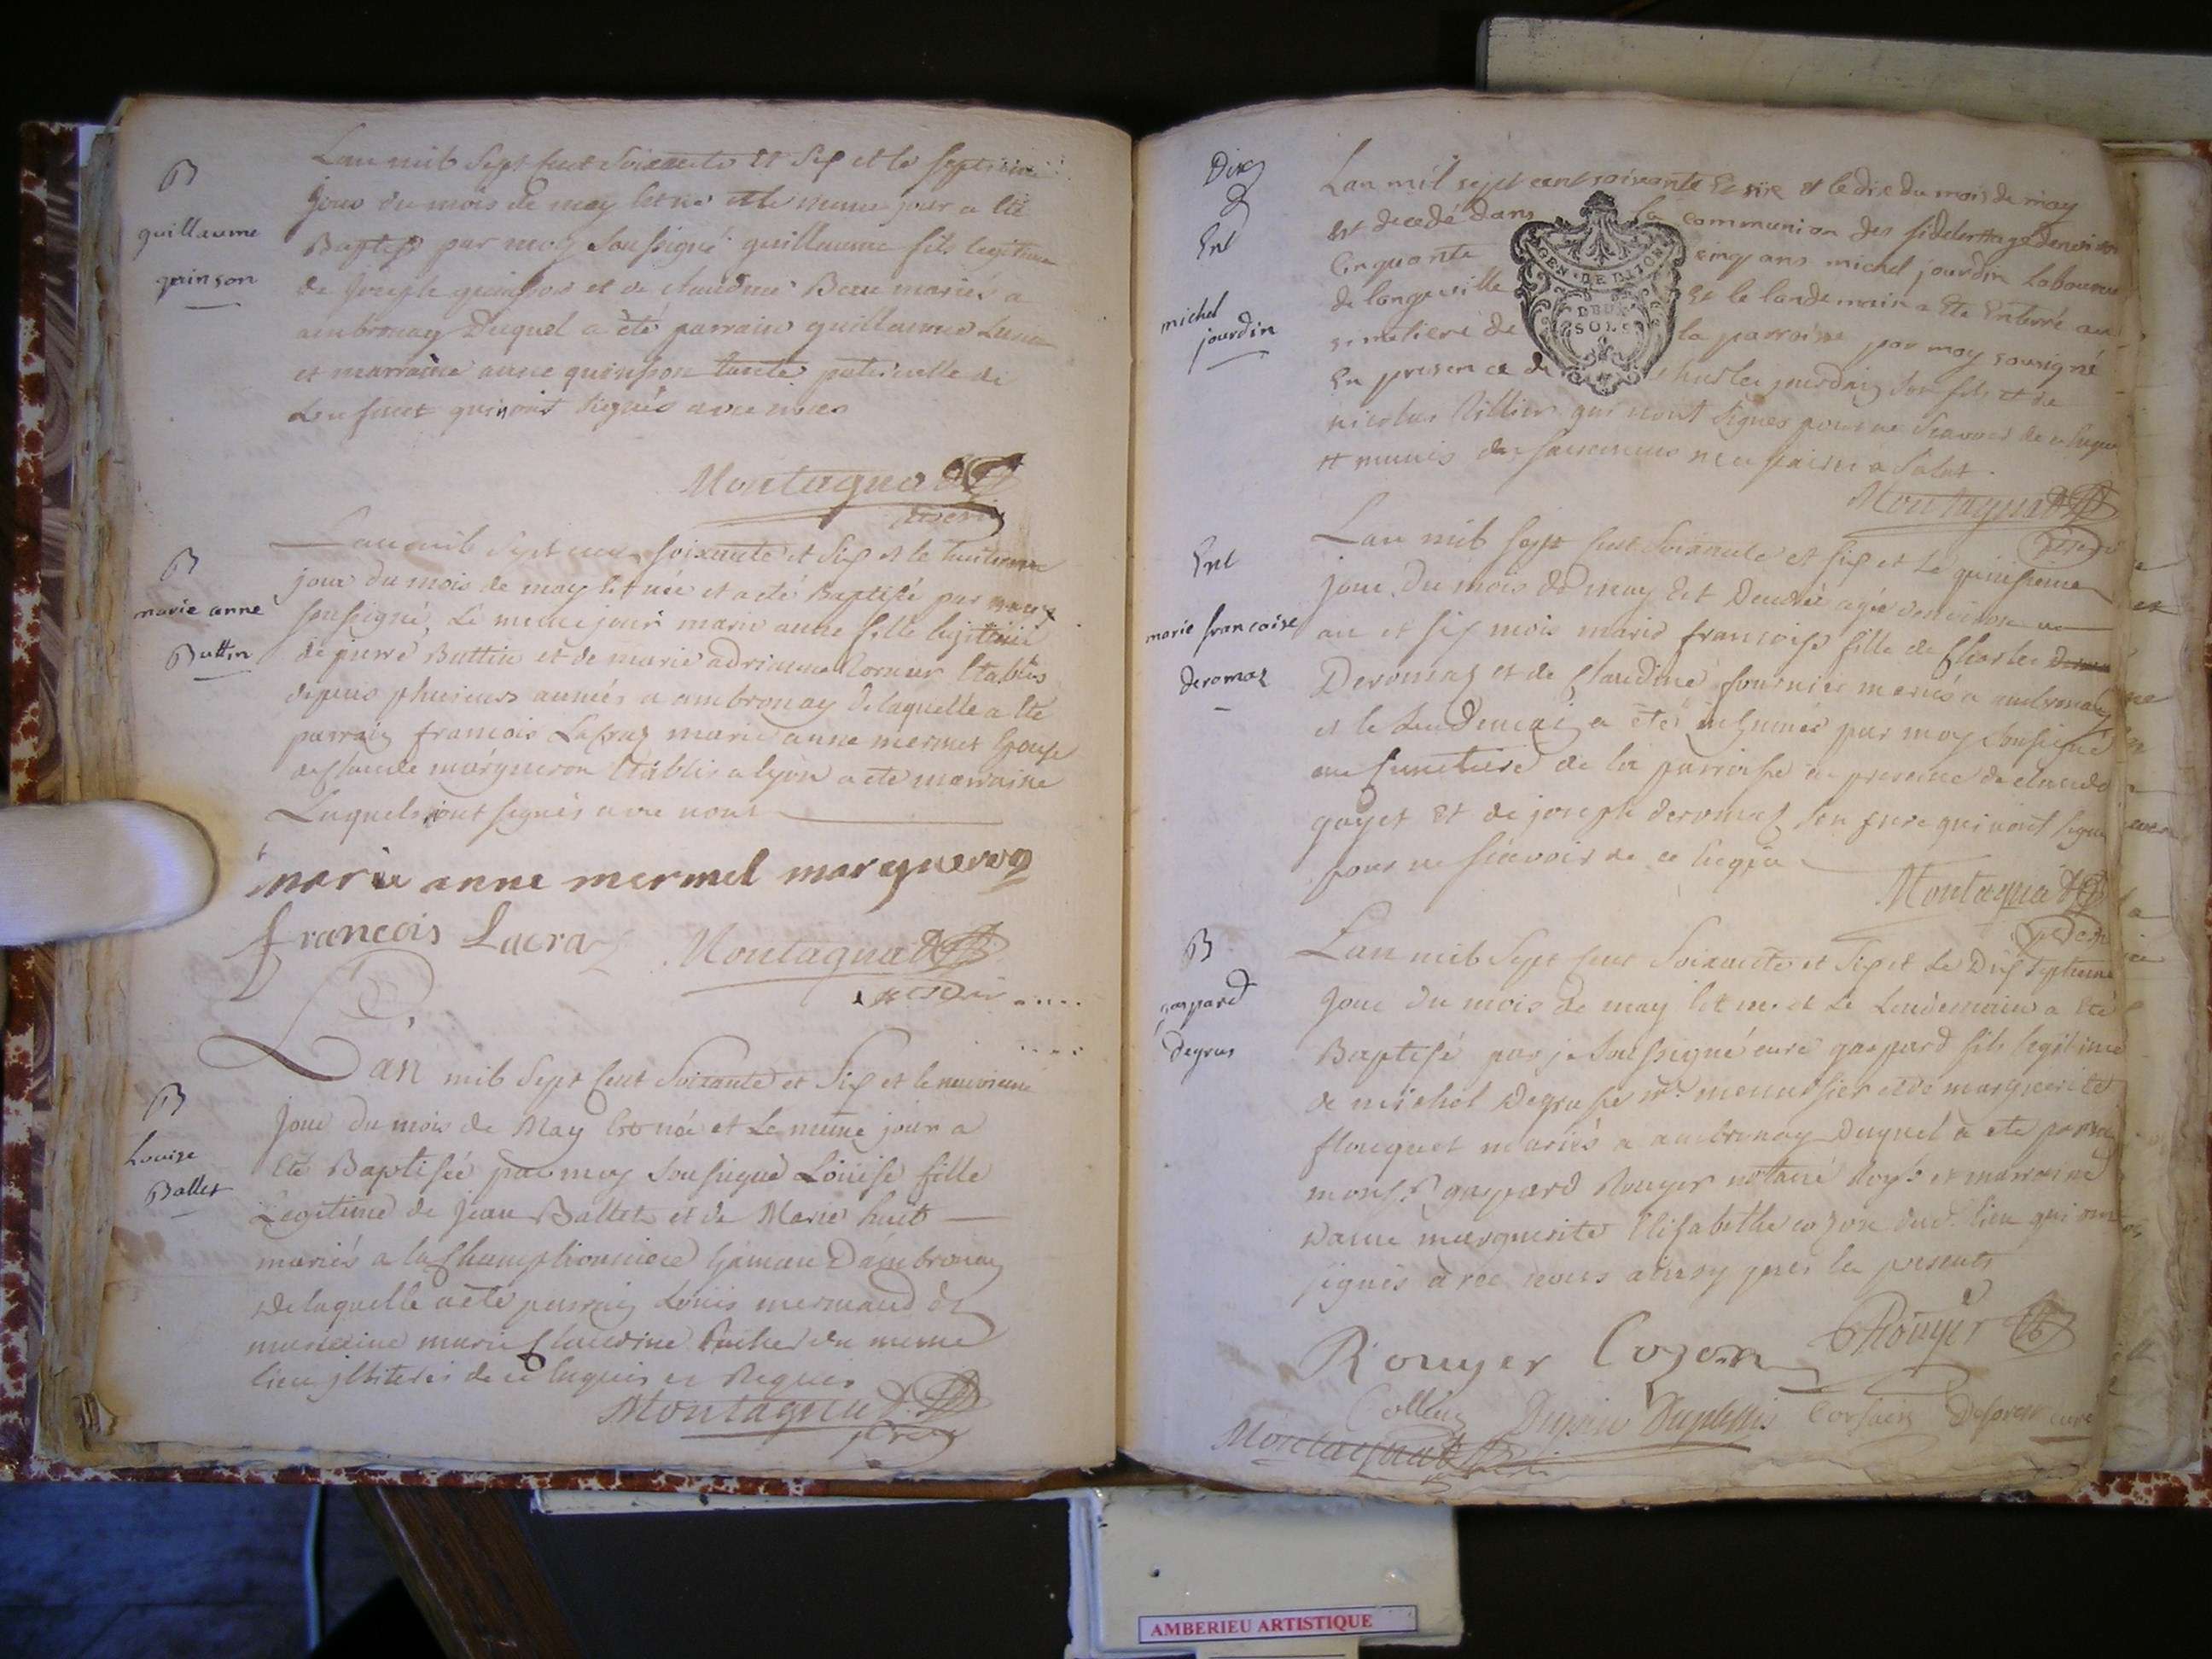 B
guillaume
quinson
Lan mil sept cent soixante et six et le septieme
jour du mois de may est né et le meme jour a été
Baptisé par moy soussigné guillaume fils legitime
de joseph quinson et de claudine Beau mariés a
ambronay Duquel a été parrain guillaume
et marraine anne quinson tante paternelle de
Lenfant qui nont signés avec nous
Montagnat
B
marie anne
Buttin
Lan mil sept cent soixante et six et le huitieme
jour du mois de may est née et a eté Baptisée par nous
soussigné, Le meme jour marie anne fille legitime
de pierre Buttin et de marie adrianne Cornier Etablis
depuis plusieurs années a ambronay De laquelle a été
parrain francois Lacraz marie anne mermet Epouse
de claude margueron Etablis a lyon a eté marraine
Lesquels ont signés avec nous
marie anne mermel margueron
francois Lacraz Montagnat
B
Louise
Ballet
Lan mil sept cent soixante et six et le neuvieme
jour du mois de May est née et Le même jour a
été Baptisée par moy soussigné Louise fille
Legitime de jean Ballet et de Marie huit
mariés a la Championniere hameau Dambronay
De laquelle a eté parrain Louis mermand et
marraine marie Claudine du meme
lieu illiterés de ce enquis et Requis
Montagnat
Dix
&
Ent
michel
jourdin
Lan mil sept cent soixante Et six et le dix du mois de may
est decedé dans la communion des fideles agé denviron
Cinquante cinq ans michel jourdin Laboureur
de longeville Et le landemain a été Enterré au
simetiere de la parroisse par moy sousigné
En presence de Charles jourdain son fils et de
nicolas Villier qui nont signés pour ne scavoir de ce enquis
et munis des sacremens necessaires a salut.
Montagnat
GEN. DE DIJON
DEUX
SOLS
Ent
marie francoise
deromaz
Lan mil sept cent soixante et six et le quinsieme
jour du mois de may Est Decedée agée denviron un
an et six mois marie francoise fille de Charles
Deromaz et de Claudine fournier mariés a ambronay
et le Lendemain a été inhumée par moy soussigné
au cimetiere de la parroisse en presence de claude
goyet Et de joseph deromaz son frere qui nont signés
pour ne scavoir de ce Enquis
Montagnat
B
gaspard
degrus
Lan mil sept cent soixante et six et le Dix septieme
jour du mois de may est né et Le Lendemain a été
Baptisé par je soussigné curé gaspard fils legitime
de michel Degruse me. menuisier et de marguerite
flouquet mariés a ambronay Duquel a eté parrain
monsr. gaspard Rouyer notaire Royal et marraine
dame marguerite Elisabethe cozon dud. lieu qui ont
signés avec nous ainsy que les presents
Rouyer Cozon Rouyer
Colleng Dupin Duplessis Corsain curé
Montagnat
AMBERIEU ARTISTIQUE